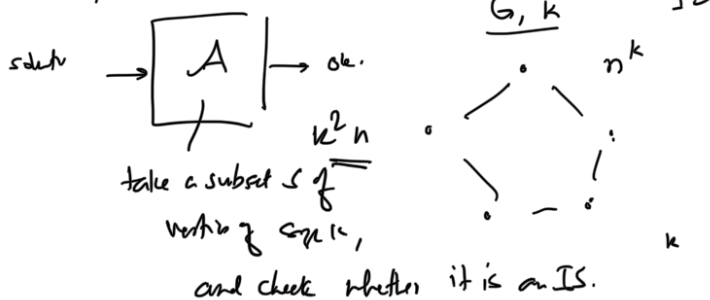 G, k
A
ok.
n^k
k^2 n
take a subset S of
vertices of size k,
k
and check whether it is an IS.